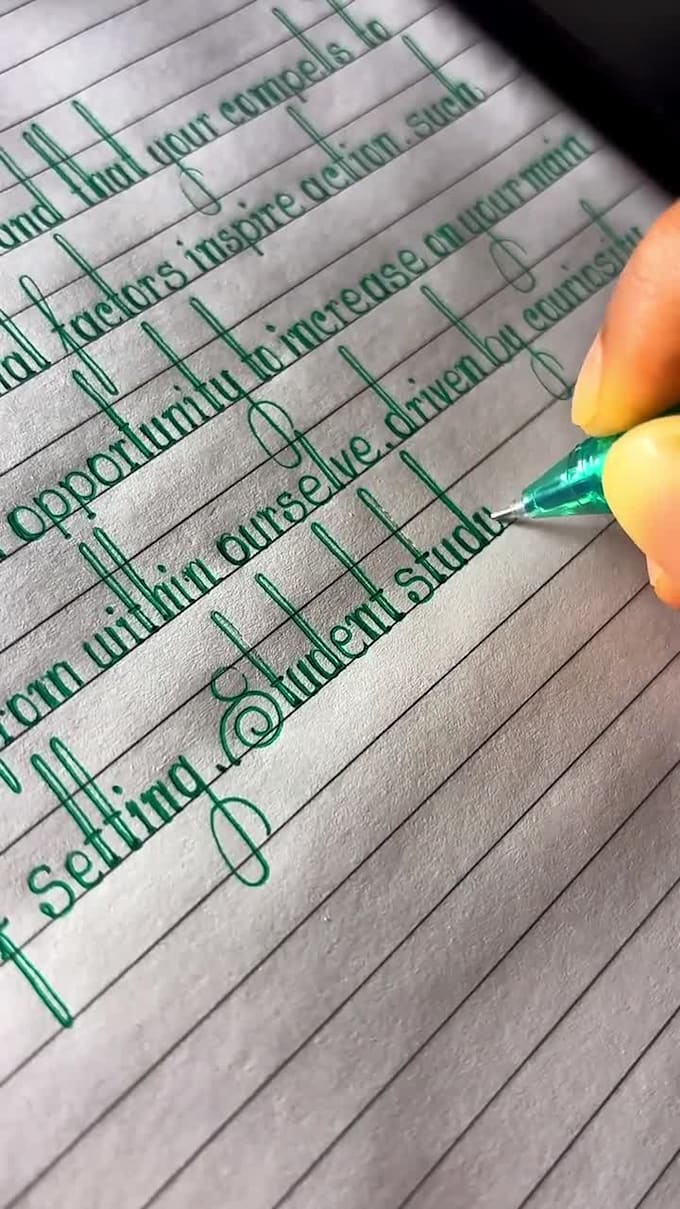 and that your compels to
factors inspire action. such
opportunity to increase on your main
from within ourselve. driven by couriosity
setting. Student study